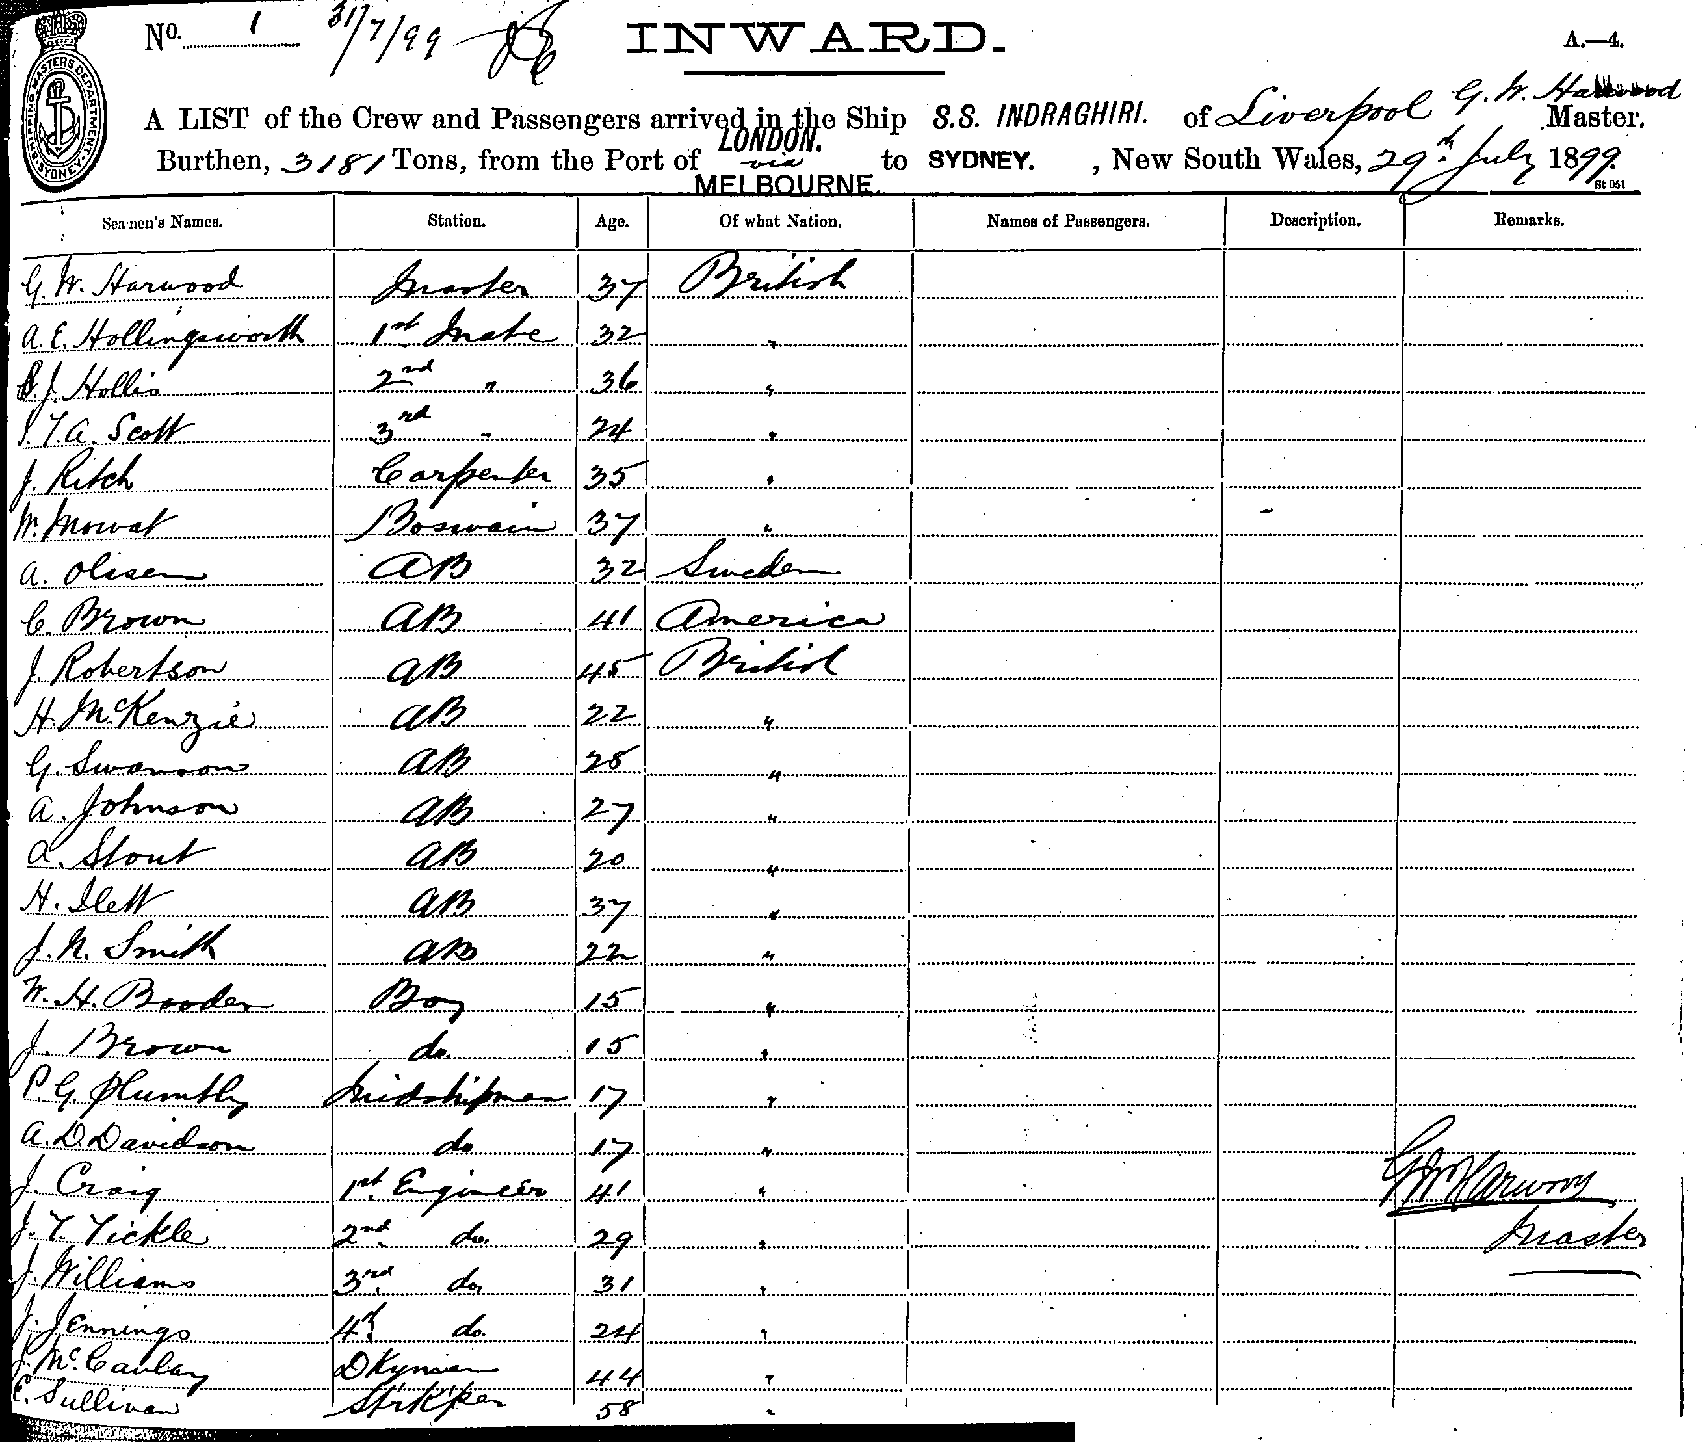 No. 1 31/7/99
INWARD.
A.—4.
SHIPPING MASTERS DEPARTMENT SYDNEY
A LIST of the Crew and Passengers arrived in the Ship S.S. INDRAGHIRI. of Liverpool G. W. Harwood Master.
Burthen, 3181 Tons, from the Port of LONDON. via MELBOURNE. to SYDNEY. , New South Wales, 29th July 1899.
St 051
Seamen's Names. Station. Age. Of what Nation. Names of Passengers. Description. Remarks.
G. W. Harwood Master 37 British
A. E. Hollingsworth 1st Mate 32 "
J. Hollis 2nd " 36 "
T. A. Scott 3rd " 24 "
J. Ritch Carpenter 35 "
W. Mowat Boswain 37 "
A. Olisen AB 32 Sweden
C. Brown AB 41 America
J. Robertson AB 45 British
H. McKenzie AB 22 "
G. Swanson AB 25 "
A. Johnson AB 27 "
Stout AB 20 "
H. Ilett AB 37 "
J. N. Smith AB 22 "
W. H. Booden Boy 15 "
J. Brown do. 15 "
P. G. Plumbly Midshipman 17 "
A. D. Davidson do 17 "
J. Craig 1st Engineer 41 " G W Harwood
J. T. Tickle 2nd do. 29 " Master
J. Williams 3rd do. 31 "
J. Jennings 4th do. 24 "
J. McCaulay DKyman 44 "
E. Sullivan StrKper 58 "